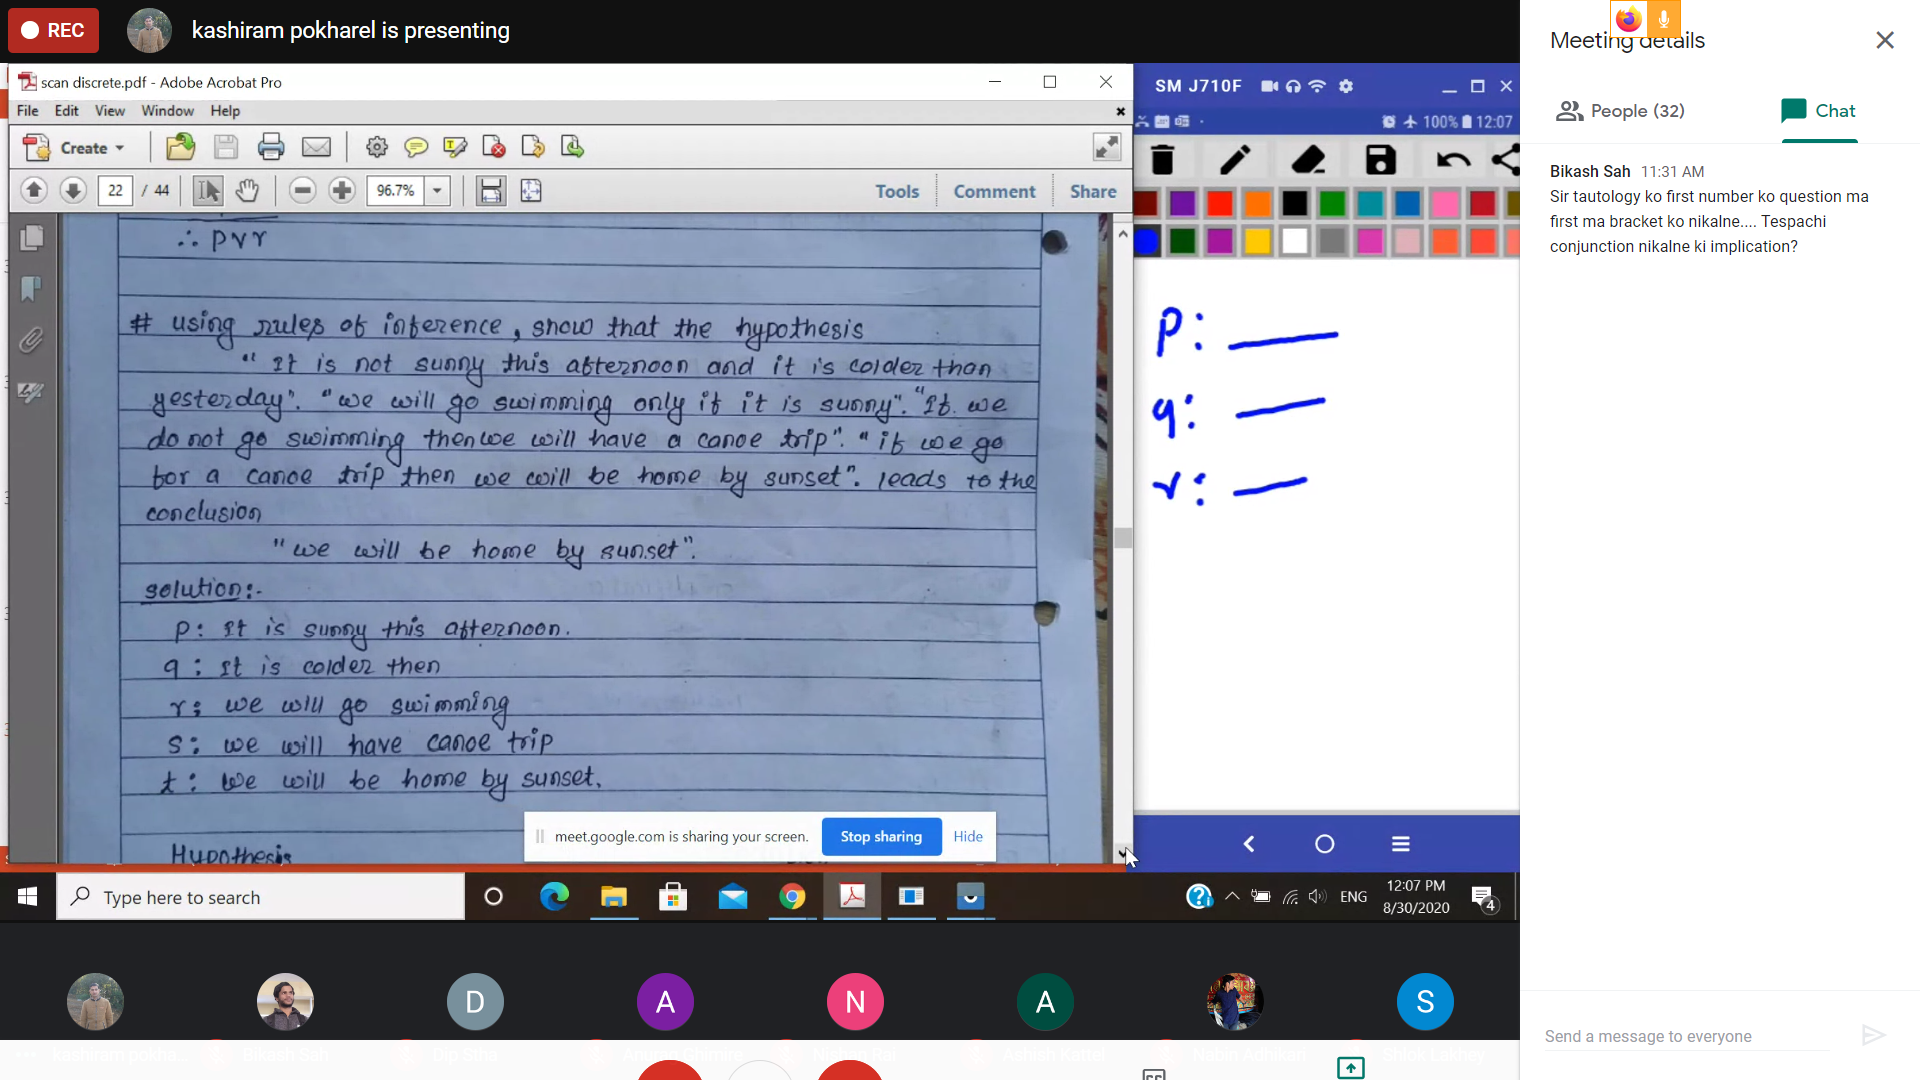 REC
kashiram pokharel is presenting
scan discrete.pdf - Adobe Acrobat Pro
File Edit View Window Help
Create
22 / 44
96.7%
Tools Comment Share
∴ p∨r
# using rules of inference, show that the hypothesis
" It is not sunny this afternoon and it is colder than
yesterday". "we will go swimming only if it is sunny". "If we
do not go swimming then we will have a canoe trip". " if we go
for a canoe trip then we will be home by sunset". leads to the
conclusion
"we will be home by sunset".
solution:-
p: It is sunny this afternoon.
q: It is colder then
r: we will go swimming
s: we will have canoe trip
t: we will be home by sunset.
Hypothesis
meet.google.com is sharing your screen. Stop sharing Hide
SM J710F
100% 12:07
p:
q:
r:
Type here to search
ENG
12:07 PM
8/30/2020
4
D
A
N
A
S
kashiram pokha...
Bikash Sah
Meeting details
People (32)
Chat
Bikash Sah 11:31 AM
Sir tautology ko first number ko question ma
first ma bracket ko nikalne.... Tespachi
conjunction nikalne ki implication?
Send a message to everyone